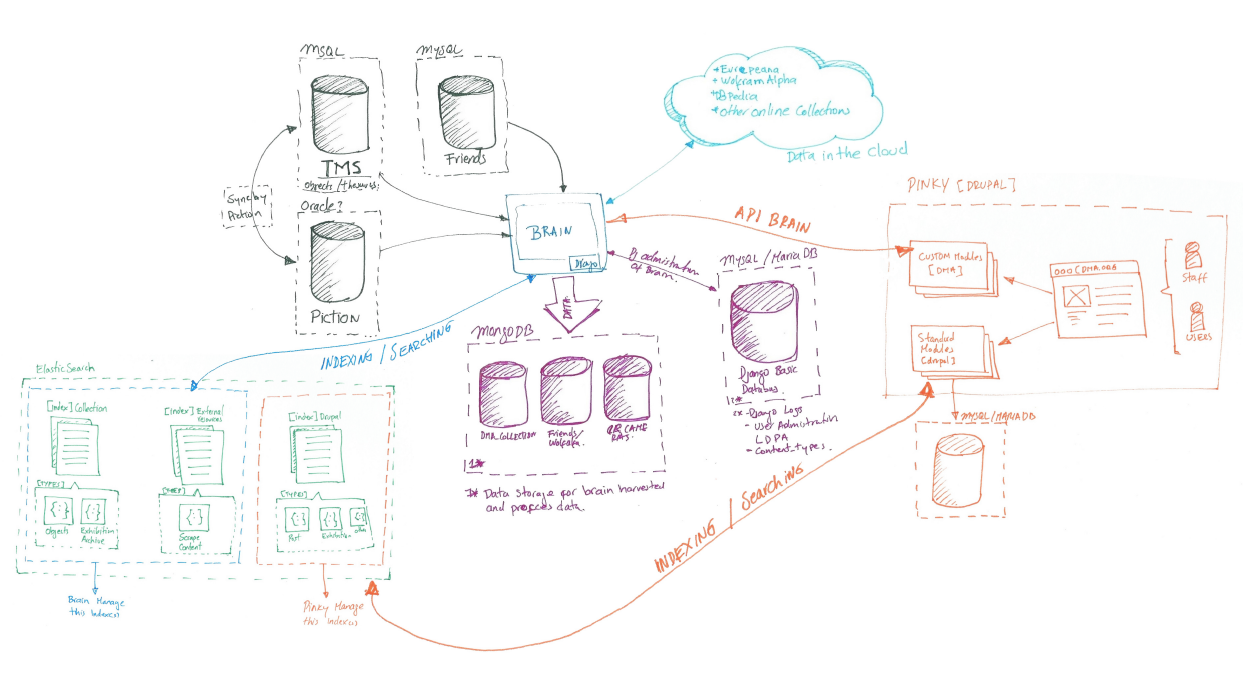 MSQL
TMS
objects /
Sync by
Piction
Oracle?
Piction
MySQL
Friends
+Europeana
+ Wolfram Alpha
+Other online Collections
Data in the Cloud
BRAIN
API BRAIN
DATA
INDEXING / SEARCHING
MongoDB
DMA COLLECTION
Friends/
1*
1* Data Storage for brain harvested
and data.
of Brain.
MySQL / Maria DB
Django Basic
2*
ex -Django Logs
- User
LDPA
- content_types.
PINKY [DRUPAL]
CUSTOM Modules
[DMA]
Standard
Modules
[drupal]
DMA.ORG
Staff
USERS
INDEXING / Searching
ElasticSearch
[index] Collection
[TYPES]
Objects
Exhibition
Archive
{:}
{:}
[index] External
{:}
Scrape
Content
[index] Drupal
[TYPES]
{:}
{:}
Post
Exhibition
Brain Manage
this Indexes
Pinky Manage
this Indexes